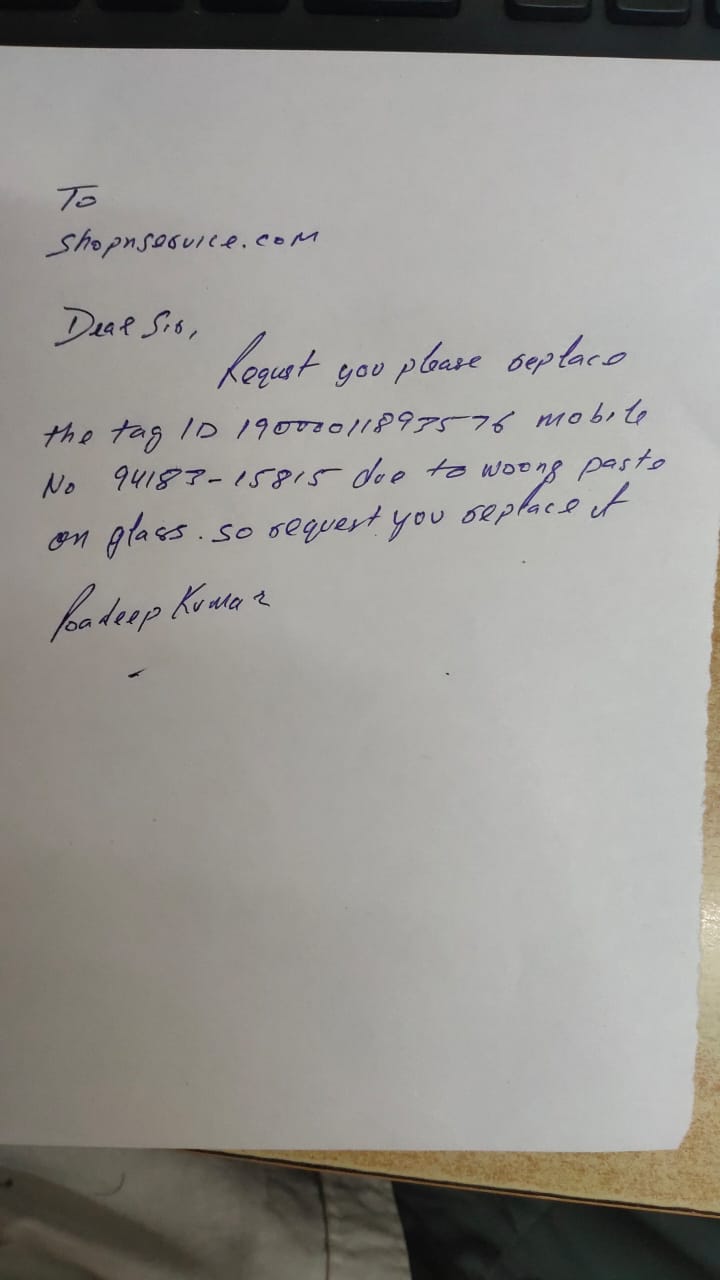 To
Shopnservice.com
Dear Sir,
Request you please replace
the tag ID 19000011893576 mobile
No 94183-15815 due to wrong paste
on glass. so request you replace it
Pradeep Kumar